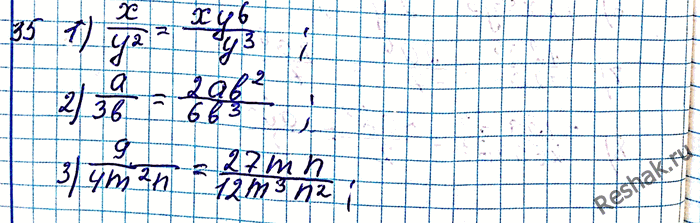 35 1) x/y² = xy⁶/y³ ;
2) a/3b = 2ab²/6b³ ;
3) 9/4m²n = 27mn/12m³n² ;
Reshak.ru